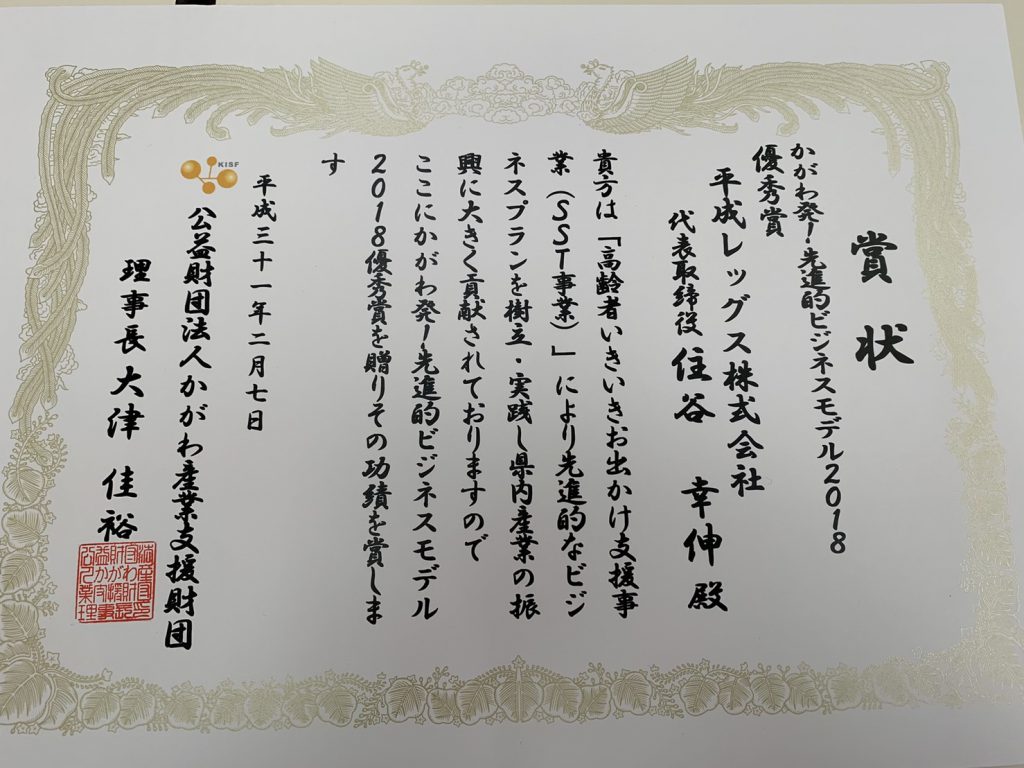 賞状
かがわ発！先進的ビジネスモデル2018
優秀賞
平成レッグス株式会社
代表取締役 住谷 幸伸 殿
貴方は「高齢者いきいきお出かけ支援事
業（SST事業）」により先進的なビジ
ネスプランを樹立・実践し県内産業の振
興に大きく貢献されておりますので
ここにかがわ発！先進的ビジネスモデル
2018優秀賞を贈りその功績を賞しま
す
平成三十一年二月七日
KISF
公益財団法人かがわ産業支援財団
理事長 大津 佳裕